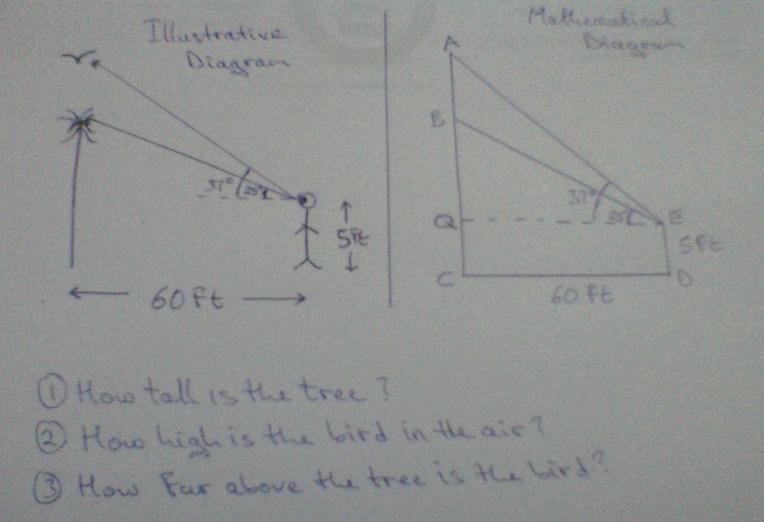 Illustrative
Diagram
37°
25°
5ft
60 Ft
Mathematical
Diagram
A
B
37°
Q
25°
E
5Ft
C
D
60 Ft
① How tall is the tree?
② How high is the bird in the air?
③ How Far above the tree is the bird?